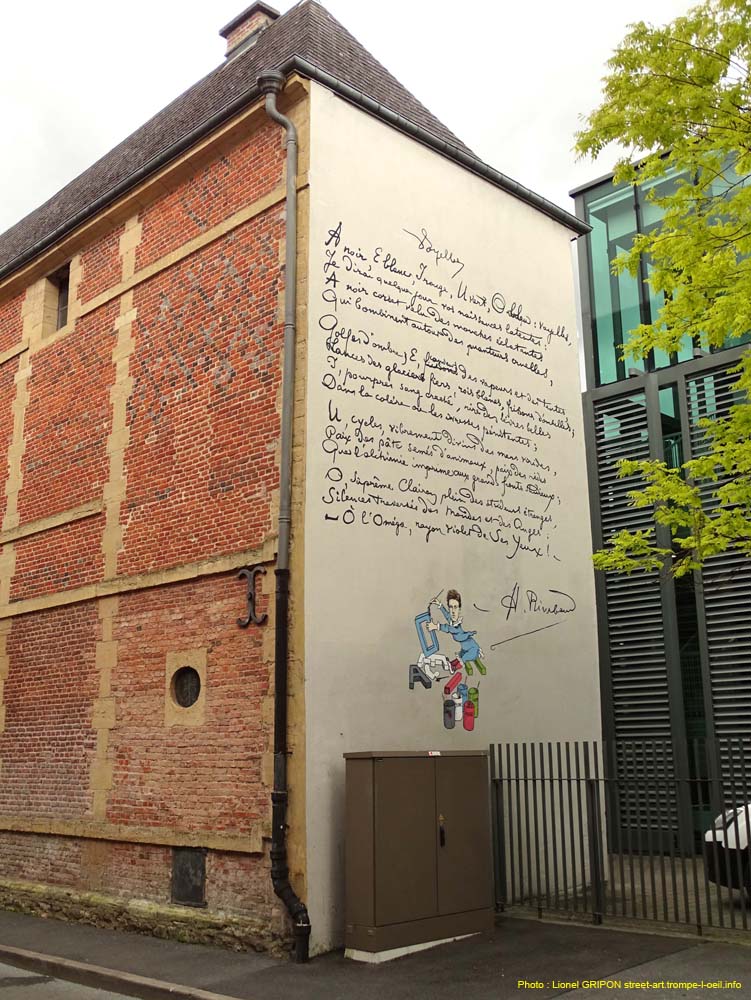 Voyelles
A noir, E blanc, I rouge, U vert, O bleu : voyelles,
Je dirai quelque jour vos naissances latentes :
A, noir corset velu des mouches éclatantes
Qui bombinent autour des puanteurs cruelles,
Golfes d'ombre, E, des vapeurs et des tentes
Lances des glaciers fiers, rois blancs, frissons d'ombelles,
I, pourpres, sang craché, rire des lèvres belles
Dans la colère ou les ivresses pénitentes ;
U, cycles, vibrements divins des mers virides,
Paix des pâtis semés d'animaux, paix des rides
Que l'alchimie imprime aux grands fronts studieux,
O, suprême Clairon plein des strideurs étranges,
Silences traversés des Mondes et des Anges :
— O l'Oméga, rayon violet de Ses Yeux ! —
A. Rimbaud
A
Photo : Lionel GRIPON street-art.trompe-l-oeil.info